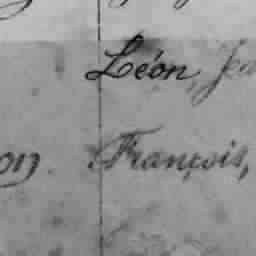 Léon,
François,